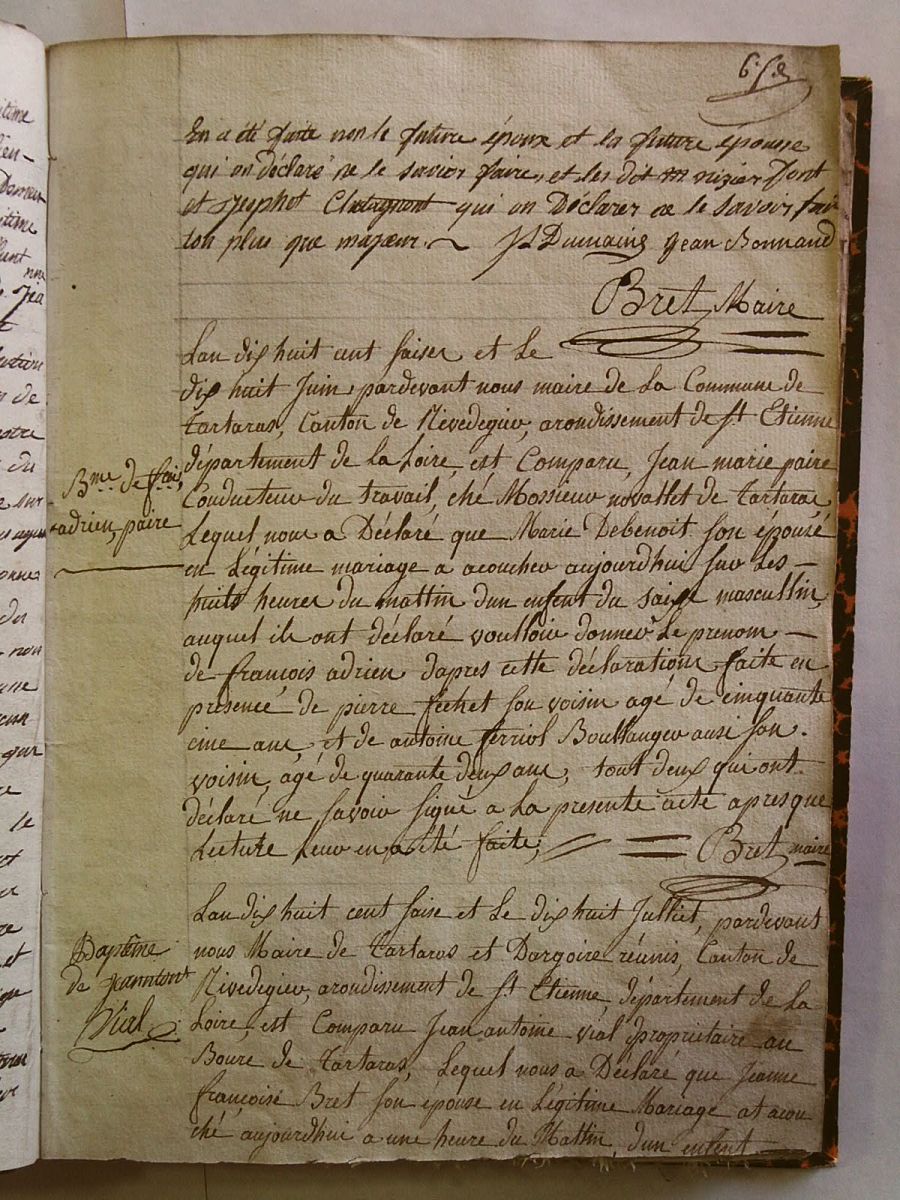 En a été faite non le future époux et la future épouse
qui on déclaré ne le savoir faire, et les dit font
et qui on Déclarer ne le savoir fair
ton plus que majeur. Js Dumaine Jean Bonnand
Bret Maire
Lan dix huit cent saiser et Le
dix huit Juin, pardevant nous maire de La Commune de
Tartaras, Canton de Rivedegiev, arondissement de st. Etienne
département de La Loire, est Comparu, Jean marie paire
Conducteur du travail, ché Monsieur novallet de Tartarae
Lequel nous a Déclaré que Marie Debenoit Son épousé
en Légitime mariage a acoucher aujourdhui sur Les —
huits heures du mattin dun enfent du saixe mascullin,
auquel ils ont déclaré voulloir donner Le prenom —
de françois adrien dapres cette déclaration, faite en
présence de pierre fechet son voisin agé de cinquante
cinc ans, et de antoine ferriol Boullanger ausi son
voisin, agé de quarante deux ans, tout deux qui ont
déclaré ne savoir signé a La presente acte apres que
Lecture Leur en a été faite; Bret maire
Bme de fçois
adrien, paire
Lan dix huit cent saise et Le dix huit Julliet, pardevant
nous Maire de Tartaras et Dargoire réunis, Canton de
Rivedegiev, arondissement de st. Etienne, département de La
Loire, est Comparu Jean antoine vial propriétaire au
Boure de Tartaras, Lequel nous a Déclaré que Jeanne
françoise Bret son épouse en Légitime Mariage at acou
ché aujourdhui a une heure du Mattin, dun enfent —
Baptême
de Jeanntont
Viel